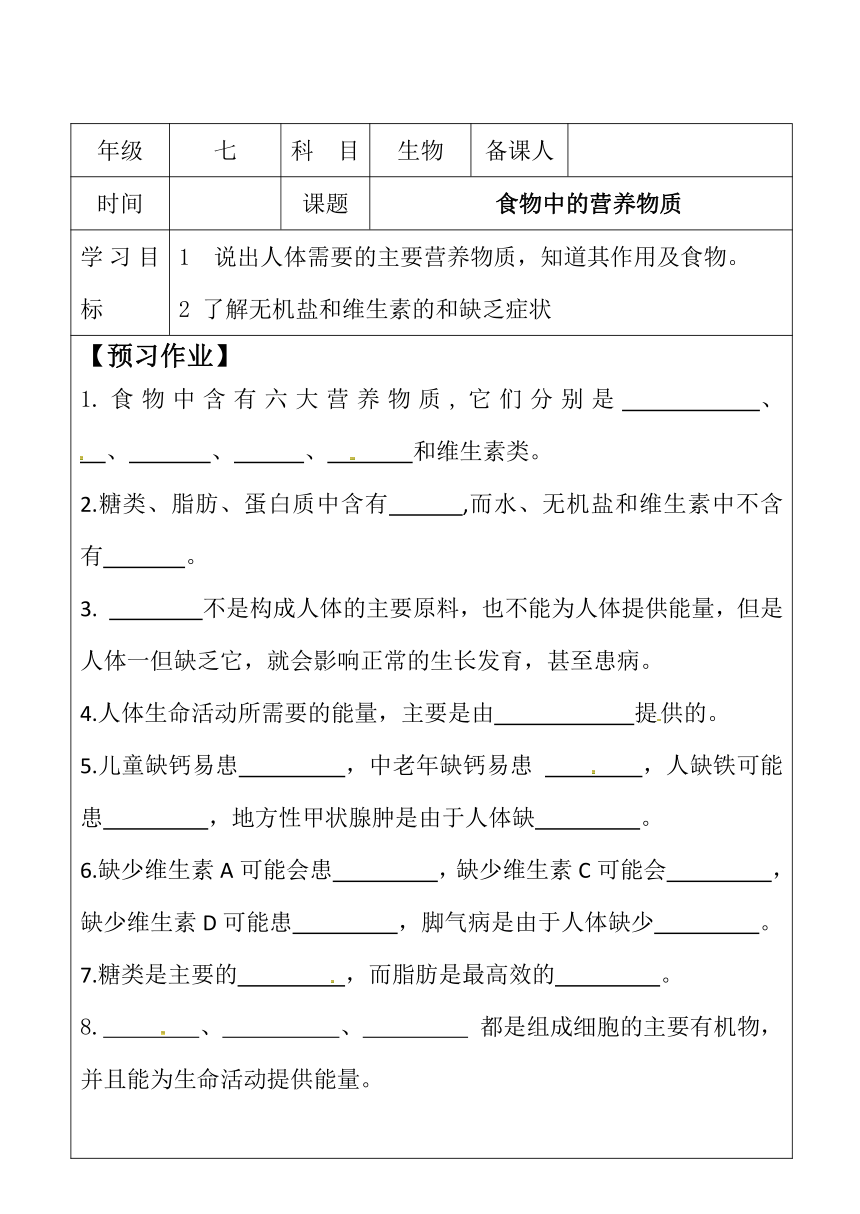 年级 七 科 目 生物 备课人
时间 课题 食物中的营养物质
学习目标 1 说出人体需要的主要营养物质，知道其作用及食物。
2 了解无机盐和维生素的和缺乏症状
【预习作业】
1. 食物中含有六大营养物质, 它们分别是____________、
__、_______、______、_______和维生素类。
2.糖类、脂肪、蛋白质中含有______,而水、无机盐和维生素中不含
有_______。
3. ________不是构成人体的主要原料，也不能为人体提供能量，但是
人体一但缺乏它，就会影响正常的生长发育，甚至患病。
4.人体生命活动所需要的能量，主要是由____________提供的。
5.儿童缺钙易患_________，中老年缺钙易患 ________，人缺铁可能
患_________，地方性甲状腺肿是由于人体缺_________。
6.缺少维生素 A 可能会患_________，缺少维生素 C 可能会_________，
缺少维生素 D 可能患_________，脚气病是由于人体缺少_________。
7.糖类是主要的_________，而脂肪是最高效的_________。
8. ________、__________、_________ 都是组成细胞的主要有机物，
并且能为生命活动提供能量。